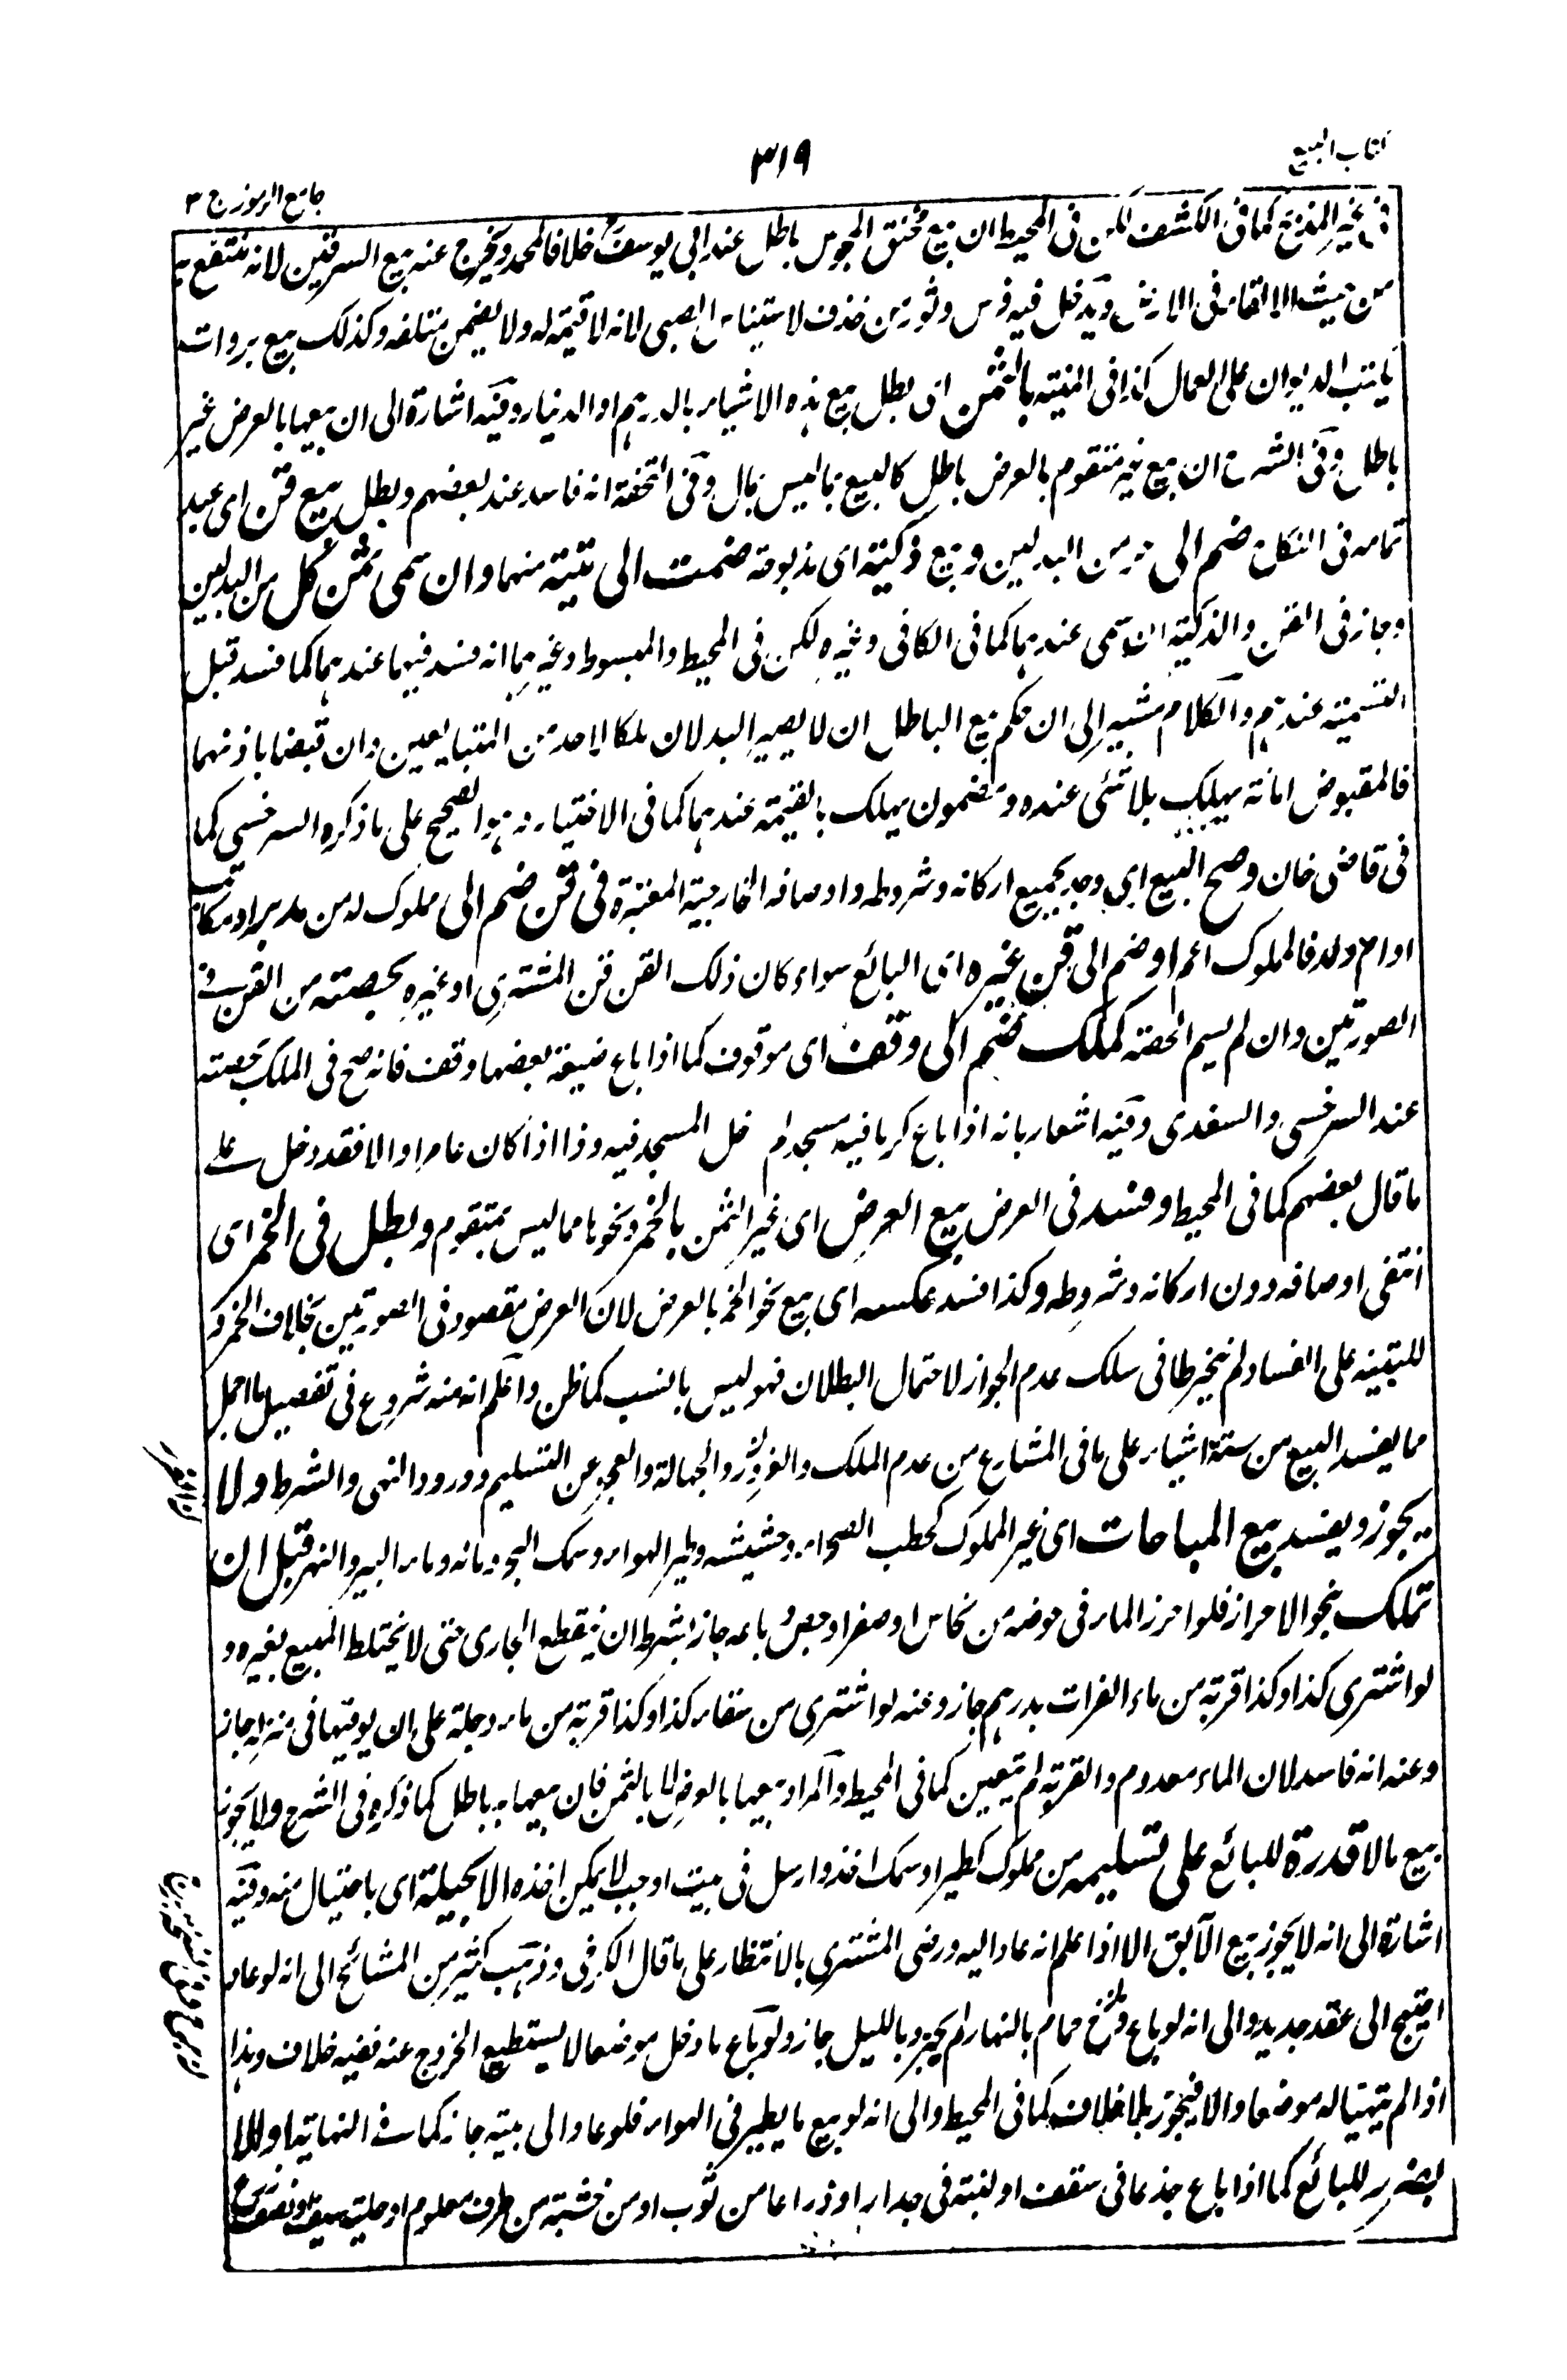 كتاب البيع
٣١٩
جامع الرموز ج ٣
فى غير المذبح كما فى الكشف لكن فى المحيط ان بيع مخنق المجوس باطل عند ابى يوسف خلافا لمحمد ويخرج عنه بيع السرقين لانه منتفع به
من حيث الالقاء فى الارض ويدخل فيه فرس وثور من خذف لاستيناس الصبى لانه لا قيمة له ولا يضمن متلفه وكذلك بيع بروات
يكتب الديوان على العمال كذا فى المنية بالثمن اى بطل بيع هذه الاشياء بالدرهم او الدينار وفيه اشارة الى ان بيعها بالعرض غير
باطل وفى الشرح ان بيع غير متقوم بالعرض باطل كالبيع بما ليس بمال وفى التحفة انه فاسد عند بعضهم وبطل بيع قن اى عبد
تمامه فى النكاح ضم الى حر من البدلين وبيع ذكية اى مذبوحة ضمت الى ميتة منهما وان سمى ثمن كل من البدلين
وجاز فى القن والذكية ان سمى عندهما كما فى الكافى وغيره لكن فى المحيط والمبسوط وغيرهما انه فسد فيهما عندهما كما فسد قبل
التسمية عندهم والكلام مشير الى ان حكم بيع الباطل ان لا يصير البدلان ملكا لاحد من المتبايعين وان قبضا باذنهما
فالمقبوض امانة يهلك بلا شئ عنده ومضمون يهلك بالقيمة عندهما كما فى الاختيار وهو الصحيح على ما ذكره السرخسى كما
فى قاضى خان وصح البيع اى وجد بجميع اركانه وشروطه واوصافه الخارجية المعتبرة فى قن ضم الى مملوك له من مدبر او مكاتب
او ام ولد فالمملوك اعم او ضم الى قن غيره اى البائع سواء كان ذلك القن قن المشترى او غيره بحصته من القن فى
الصورتين وان لم يسم الحصة كملك ضم الى وقف اى موقوف كما اذا باع ضيعة بعضها وقف فانه صح فى الملك بحصته
عند السرخسى والسغدى وفيه اشعار بانه اذا باع كرما فيه مسجد لم خل المسجد فيه وذا اذا كان عامرا والا فقد دخل على
ما قال بعضهم كما فى المحيط وفسد فى العرض بيع العرض اى غير الثمن بالخمر ونحوها مما ليس بمتقوم وبطل فى الخمر اى
انتفى اوصافه دون اركانه وشروطه وكذا فسد عكسه اى بيع نحو الخمر بالعرض لان العرض مقصود فى الصورتين بخلاف الخمر
للتنبيه على الفساد ولم ينخرطا فى سلك عدم الجواز لاحتمال البطلان فهو ليس بانسب كما ظن واعلم انه منه شروع فى تفصيل ما اجمل
مما يفسد البيع من ستة اشياء على ما فى المشارع من عدم الملك والغرور والجهالة والعجز عن التسليم وورود النهى والشرط ولا
يجوز ويفسد بيع المباحات اى غير المملوك كحطب الصحراء وحشيشه وطير الهواء وسمك البحر ومائه وماء البير والنهر قبل ان
تملك بنحو الاحراز فلو احرز الماء فى حوضه من نحاس او صفر او جص وباعه جاز بشرط ان ينقطع الجارى حتى لا يختلط المبيع بغيره و
لو اشترى كذا وكذا قربة من ماء الفرات بدرهم جاز وعنه لو اشترى من سقاء كذا وكذا قربة من ماء دجلة على ان يوفيها فى منزله جاز
وعنه انه فاسد لان الماء معدوم والقربة لم يتعين كما فى المحيط والمراد بيعها بالعرض لا بالثمن فان بيعها به باطل كما ذكره فى الشرح ولا يجوز
بيع ما لا قدرة للبائع على تسليمه من مملوك كطير او سمك اخذ وارسل فى بيت او جب لا يمكن اخذه الا بحيلة اى باحتيال منه وفيه
اشارة الى انه لا يجوز بيع الآبق الا اذا علم انه عاد اليه ورضى المشترى بالانتظار على ما قال الكرخى وذهب كثير من المشائخ الى انه لو عاد
احتيج الى عقد جديد والى انه لو باع فرخ حمام بالنهار لم يجز وبالليل جاز ولو باع ما دخل موضعا لا يستطيع الخروج عنه ففيه خلاف وهذا
اذا لم يتهيأ له موضعا والا فيجوز بلا خلاف كما فى المحيط والى انه لو بيع ما يطير فى الهواء فلو عاد الى بيته جاز كما فى النهاية او لا الا
بضرر للبائع كما اذا باع جذعا فى سقف او لبنة فى جدار او ذراعا من ثوب او من خشبة من طرف معلوم او حلية سيف او نصف زرع